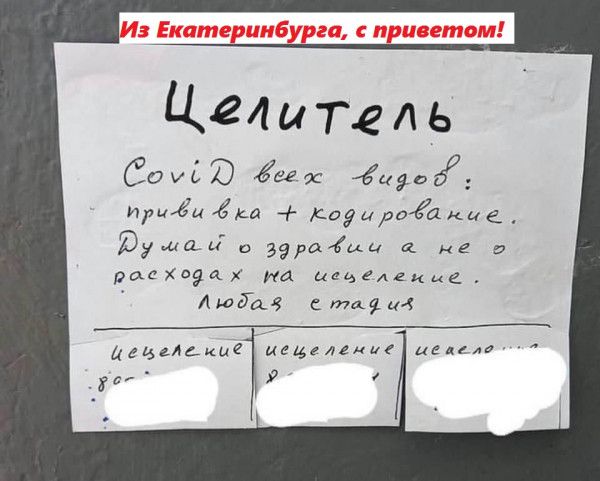 Из Екатеринбурга, с приветом!
Целитель
CoviD всех видов:
прививка + кодирование.
Думай о здравии а не о
расходах на исцеление.
Любая стадия
исцеление исцеление